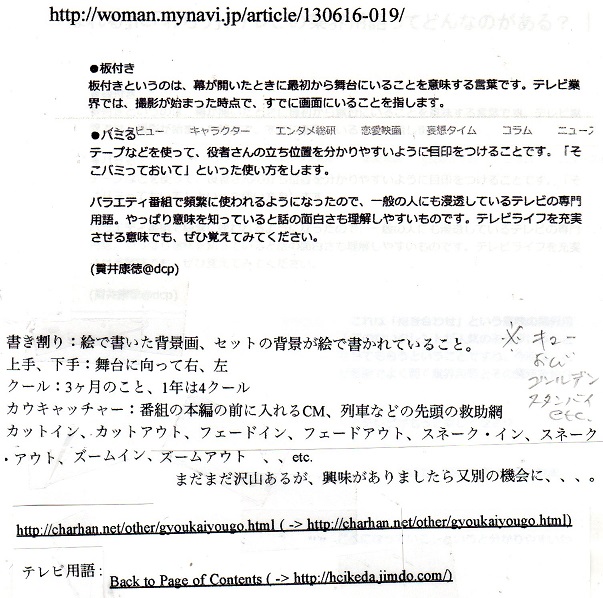 http://woman.mynavi.jp/article/130616-019/
●板付き
板付きというのは、幕が開いたときに最初から舞台にいることを意味する言葉です。テレビ業
界では、撮影が始まった時点で、すでに画面にいることを指します。
●バミる
ビュー キャラクター エンタメ総研 恋愛映画 妄想タイム コラム ニュース
テープなどを使って、役者さんの立ち位置を分かりやすいように目印をつけることです。「そ
こバミっておいて」といった使い方をします。
バラエティ番組で頻繁に使われるようになったので、一般の人にも浸透しているテレビの専門
用語。やっぱり意味を知っていると話の面白さも理解しやすいものです。テレビライフを充実
させる意味でも、ぜひ覚えてみてください。
(貫井康徳@dcp)
書き割り：絵で書いた背景画、セットの背景が絵で書かれていること。
上手、下手：舞台に向って右、左
クール：3ヶ月のこと、1年は4クール
カウキャッチャー：番組の本編の前に入れるCM、列車などの先頭の救助網
カットイン、カットアウト、フェードイン、フェードアウト、スネーク・イン、スネーク
・アウト、ズームイン、ズームアウト 、、、etc.
※ キュー
おび
ゴールデン
スタンバイ
etc.
まだまだ沢山あるが、興味がありましたら又別の機会に、、、。
http://charhan.net/other/gyoukaiyougo.html ( -> http://charhan.net/other/gyoukaiyougo.html)
テレビ用語 : Back to Page of Contents ( -> http://hcikeda.jimdo.com/)